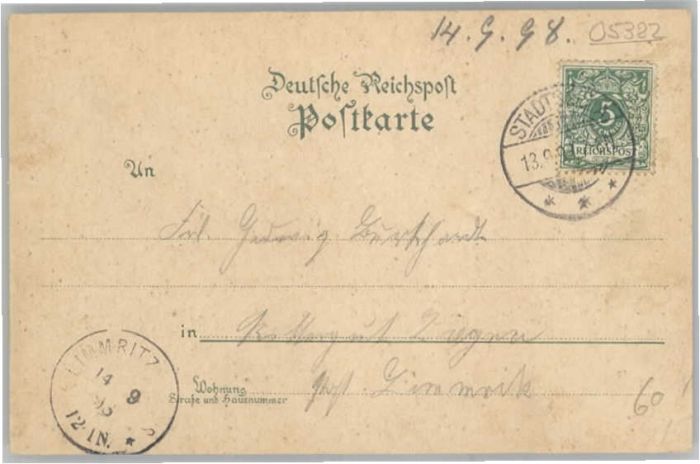 14. 9. 98. 05382
Deutsche Reichspost
Postkarte
5
REICHSPOST
STADT
13.9.9
An
Frl. Hedwig Burkhardt
in Rittergut Ziegra
Wohnung
Straße und Hausnummer
Post Limmritz
LIMMRITZ
14 9
98
12-1N.
60